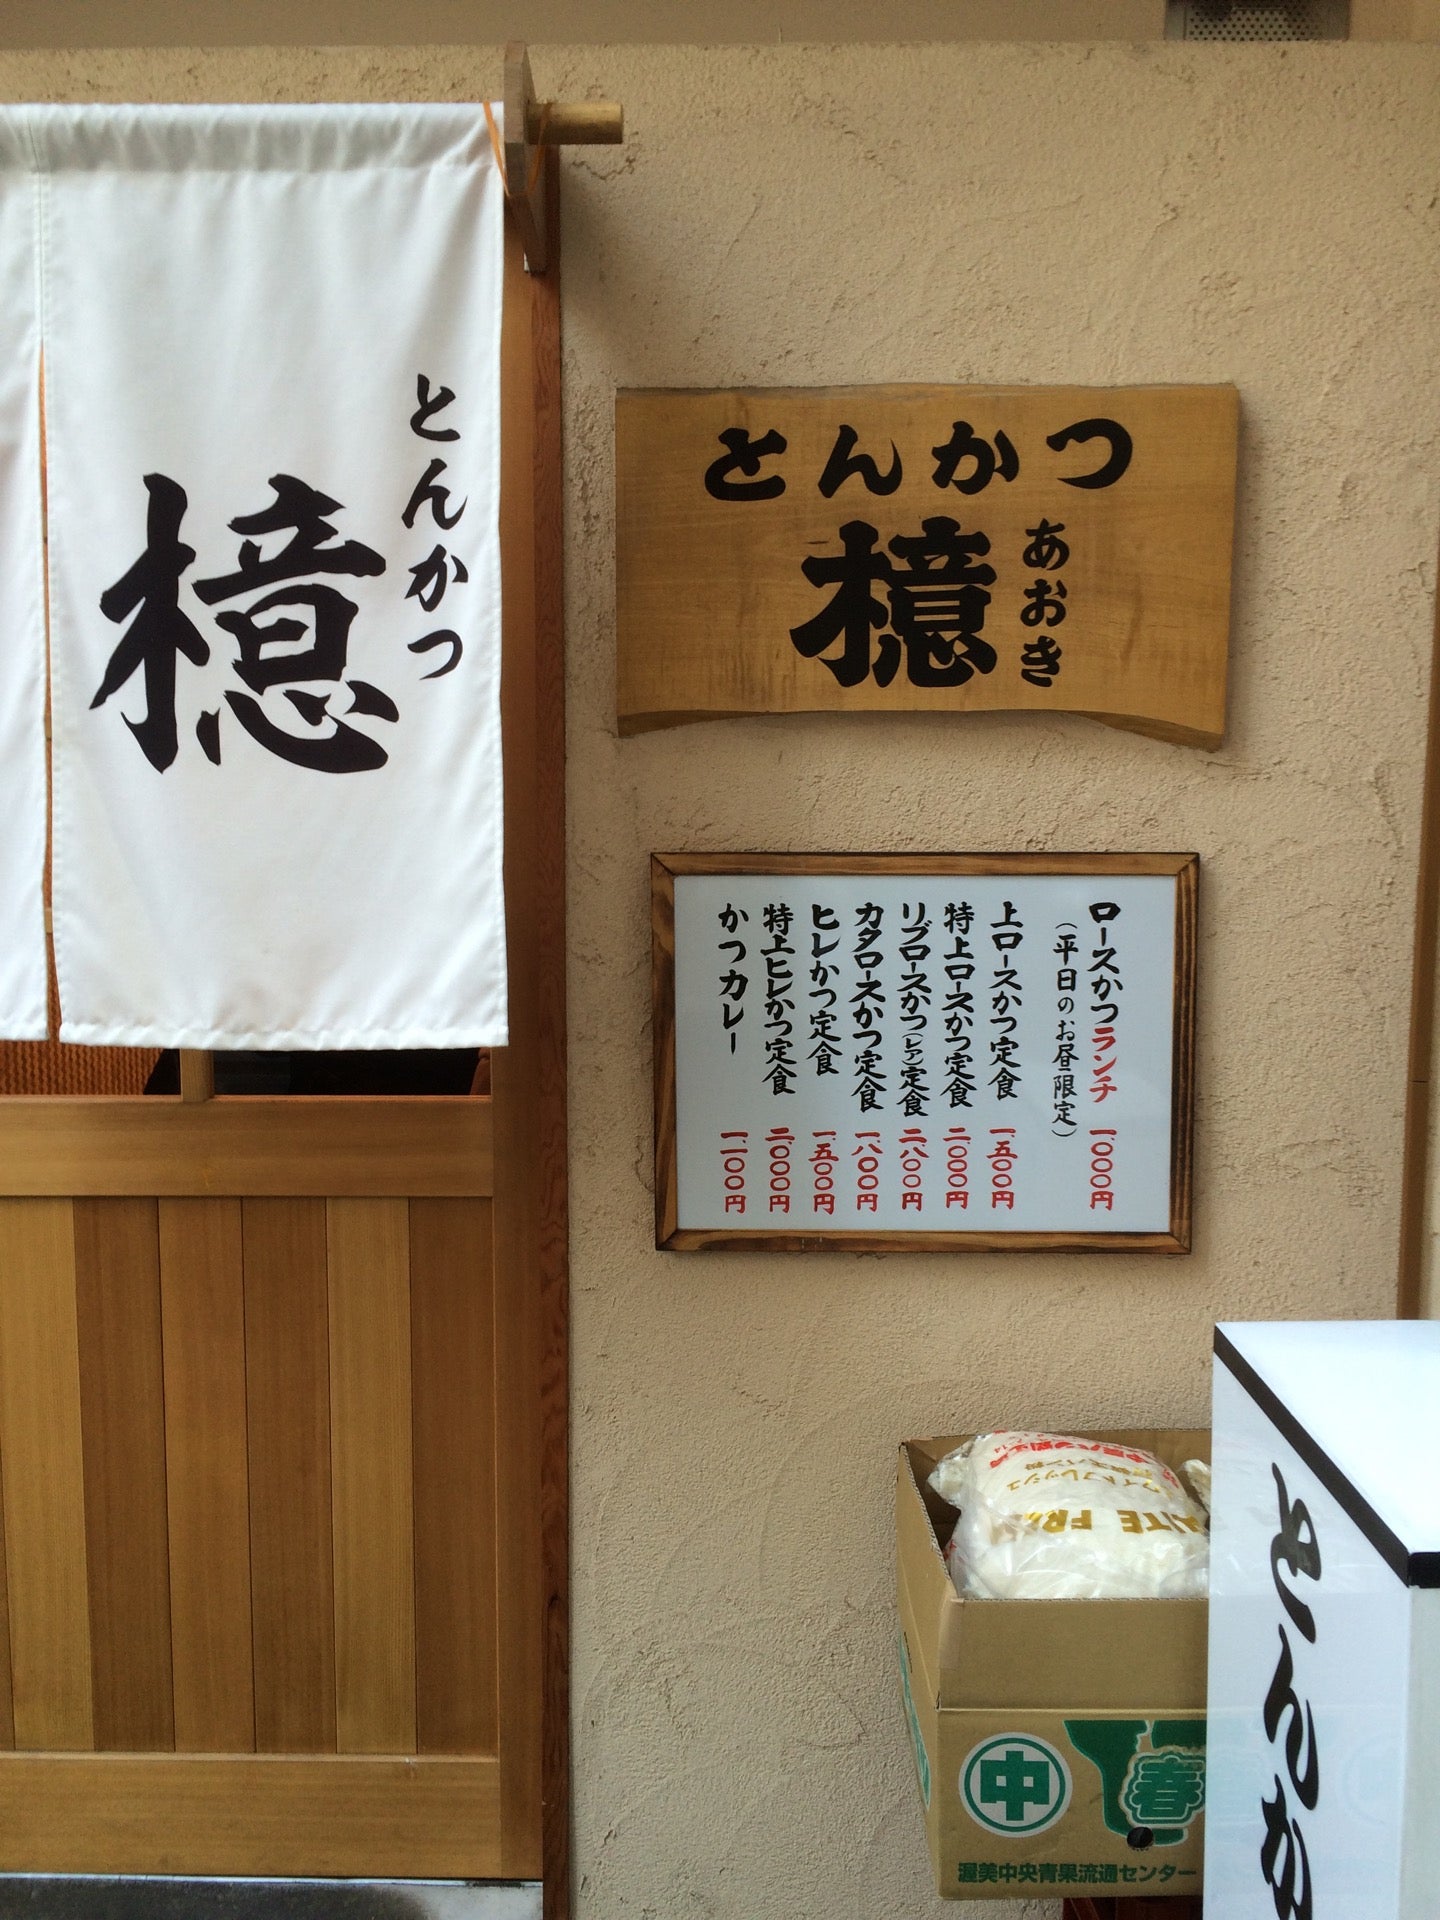 とんかつ
檍
とんかつ
檍
あおき
ロースかつランチ 一、〇〇〇円
(平日のお昼限定)
上ロースかつ定食 一、五〇〇円
特上ロースかつ定食 二、〇〇〇円
リブロースかつ(レア)定食 二、八〇〇円
カタロースかつ定食 一、八〇〇円
ヒレかつ定食 一、五〇〇円
特上ヒレかつ定食 二、〇〇〇円
かつカレー 一、一〇〇円
ホワイトフレッシュ
中
春
渥美中央青果流通センター
とんか